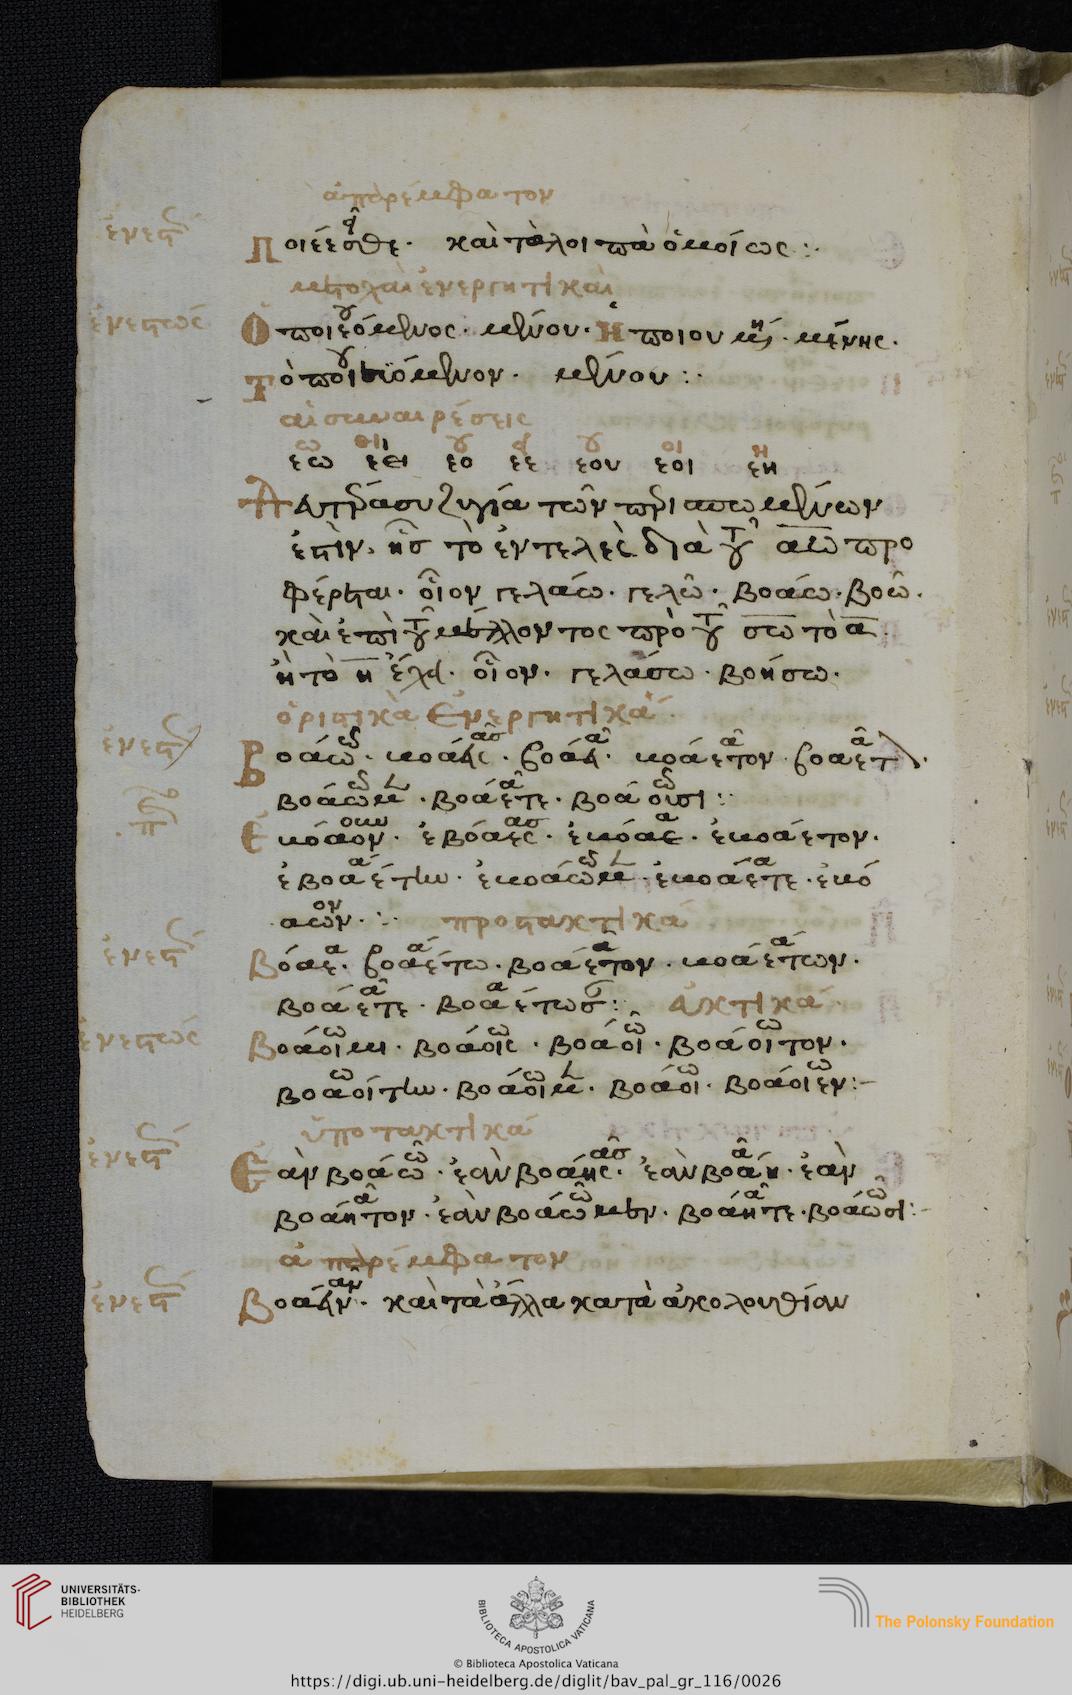 ἀπαρέμφατον
ἐνεστ
Ποιέεσθε· καὶ τὰ λοιπὰ ὁμοίως :·
μετοχαὶ ἐνεργητικαὶ
ἐνεστῶς
Ὁ ποιεόμενος· μένου· Ἡ ποιουμένη· μένης·
Τὸ ποιεόμενον· μένου :·
αἱ συναιρέσεις
ου οι η
εω εει εο εε εου εοι εη
Ἡ δευτέρα συζυγία τῶν περισπωμένων
ἐστὶν, ἧς τὸ ἐντελὲς διὰ τοῦ αω προ
φέρεται· οἷον γελάω· γελῶ· βοάω· βοῶ·
καὶ ἐπὶ τοῦ μέλλοντος πρὸ τοῦ σω τὸ α
ἢ τὸ η ἔχει· οἷον· γελάσω· βοήσω·
ὁριστικὰ Ἐνεργητικά·
ἐνεστ
ῶ ᾶσ ᾶ ᾶ ᾶ
Βοάω· βοάεις· βοάει· βοάετον· βοάετον·
ῶ ᾶ ῶ
βοάομεν· βοάετε· βοάουσι :·
ων ασ α
Ἐβόαον· ἐβόαες· ἐβόαε· ἐβοάετον·
α ῶ α
ἐβοαέτην· ἐβοάομεν· ἐβοάετε· ἐβό
αον· :· προστακτικά
ἐνεστ
α α α α
Βόαε· βοαέτω· βοάετον· βοαέτων·
ᾶ α
βοάετε· βοαέτωσαν :· εὐκτικά
ἐνεστῶς
ω ω ω ω
Βοάοιμι· βοάοις· βοάοι· βοάοιτον·
ω ω ω ω
βοαοίτην· βοάοιμεν· βοάοι· βοάοιεν :–
ὑποτακτικά
ἐνεστ
ῶ ᾶσ ᾶ
Ἐὰν βοάω· ἐὰν βοάης· ἐὰν βοάη· ἐὰν
ᾶ ῶ ᾶ ῶ
βοάητον· ἐὰν βοάωμεν· βοάητε· βοάωσι :–
ἀπαρέμφατον
ἐνεστ
ᾶν
Βοάειν· καὶ τὰ ἄλλα κατὰ ἀκολουθίαν
UNIVERSITÄTS-
BIBLIOTHEK
HEIDELBERG
BIBLIOTECA APOSTOLICA VATICANA
The Polonsky Foundation
© Biblioteca Apostolica Vaticana
https://digi.ub.uni-heidelberg.de/diglit/bav_pal_gr_116/0026